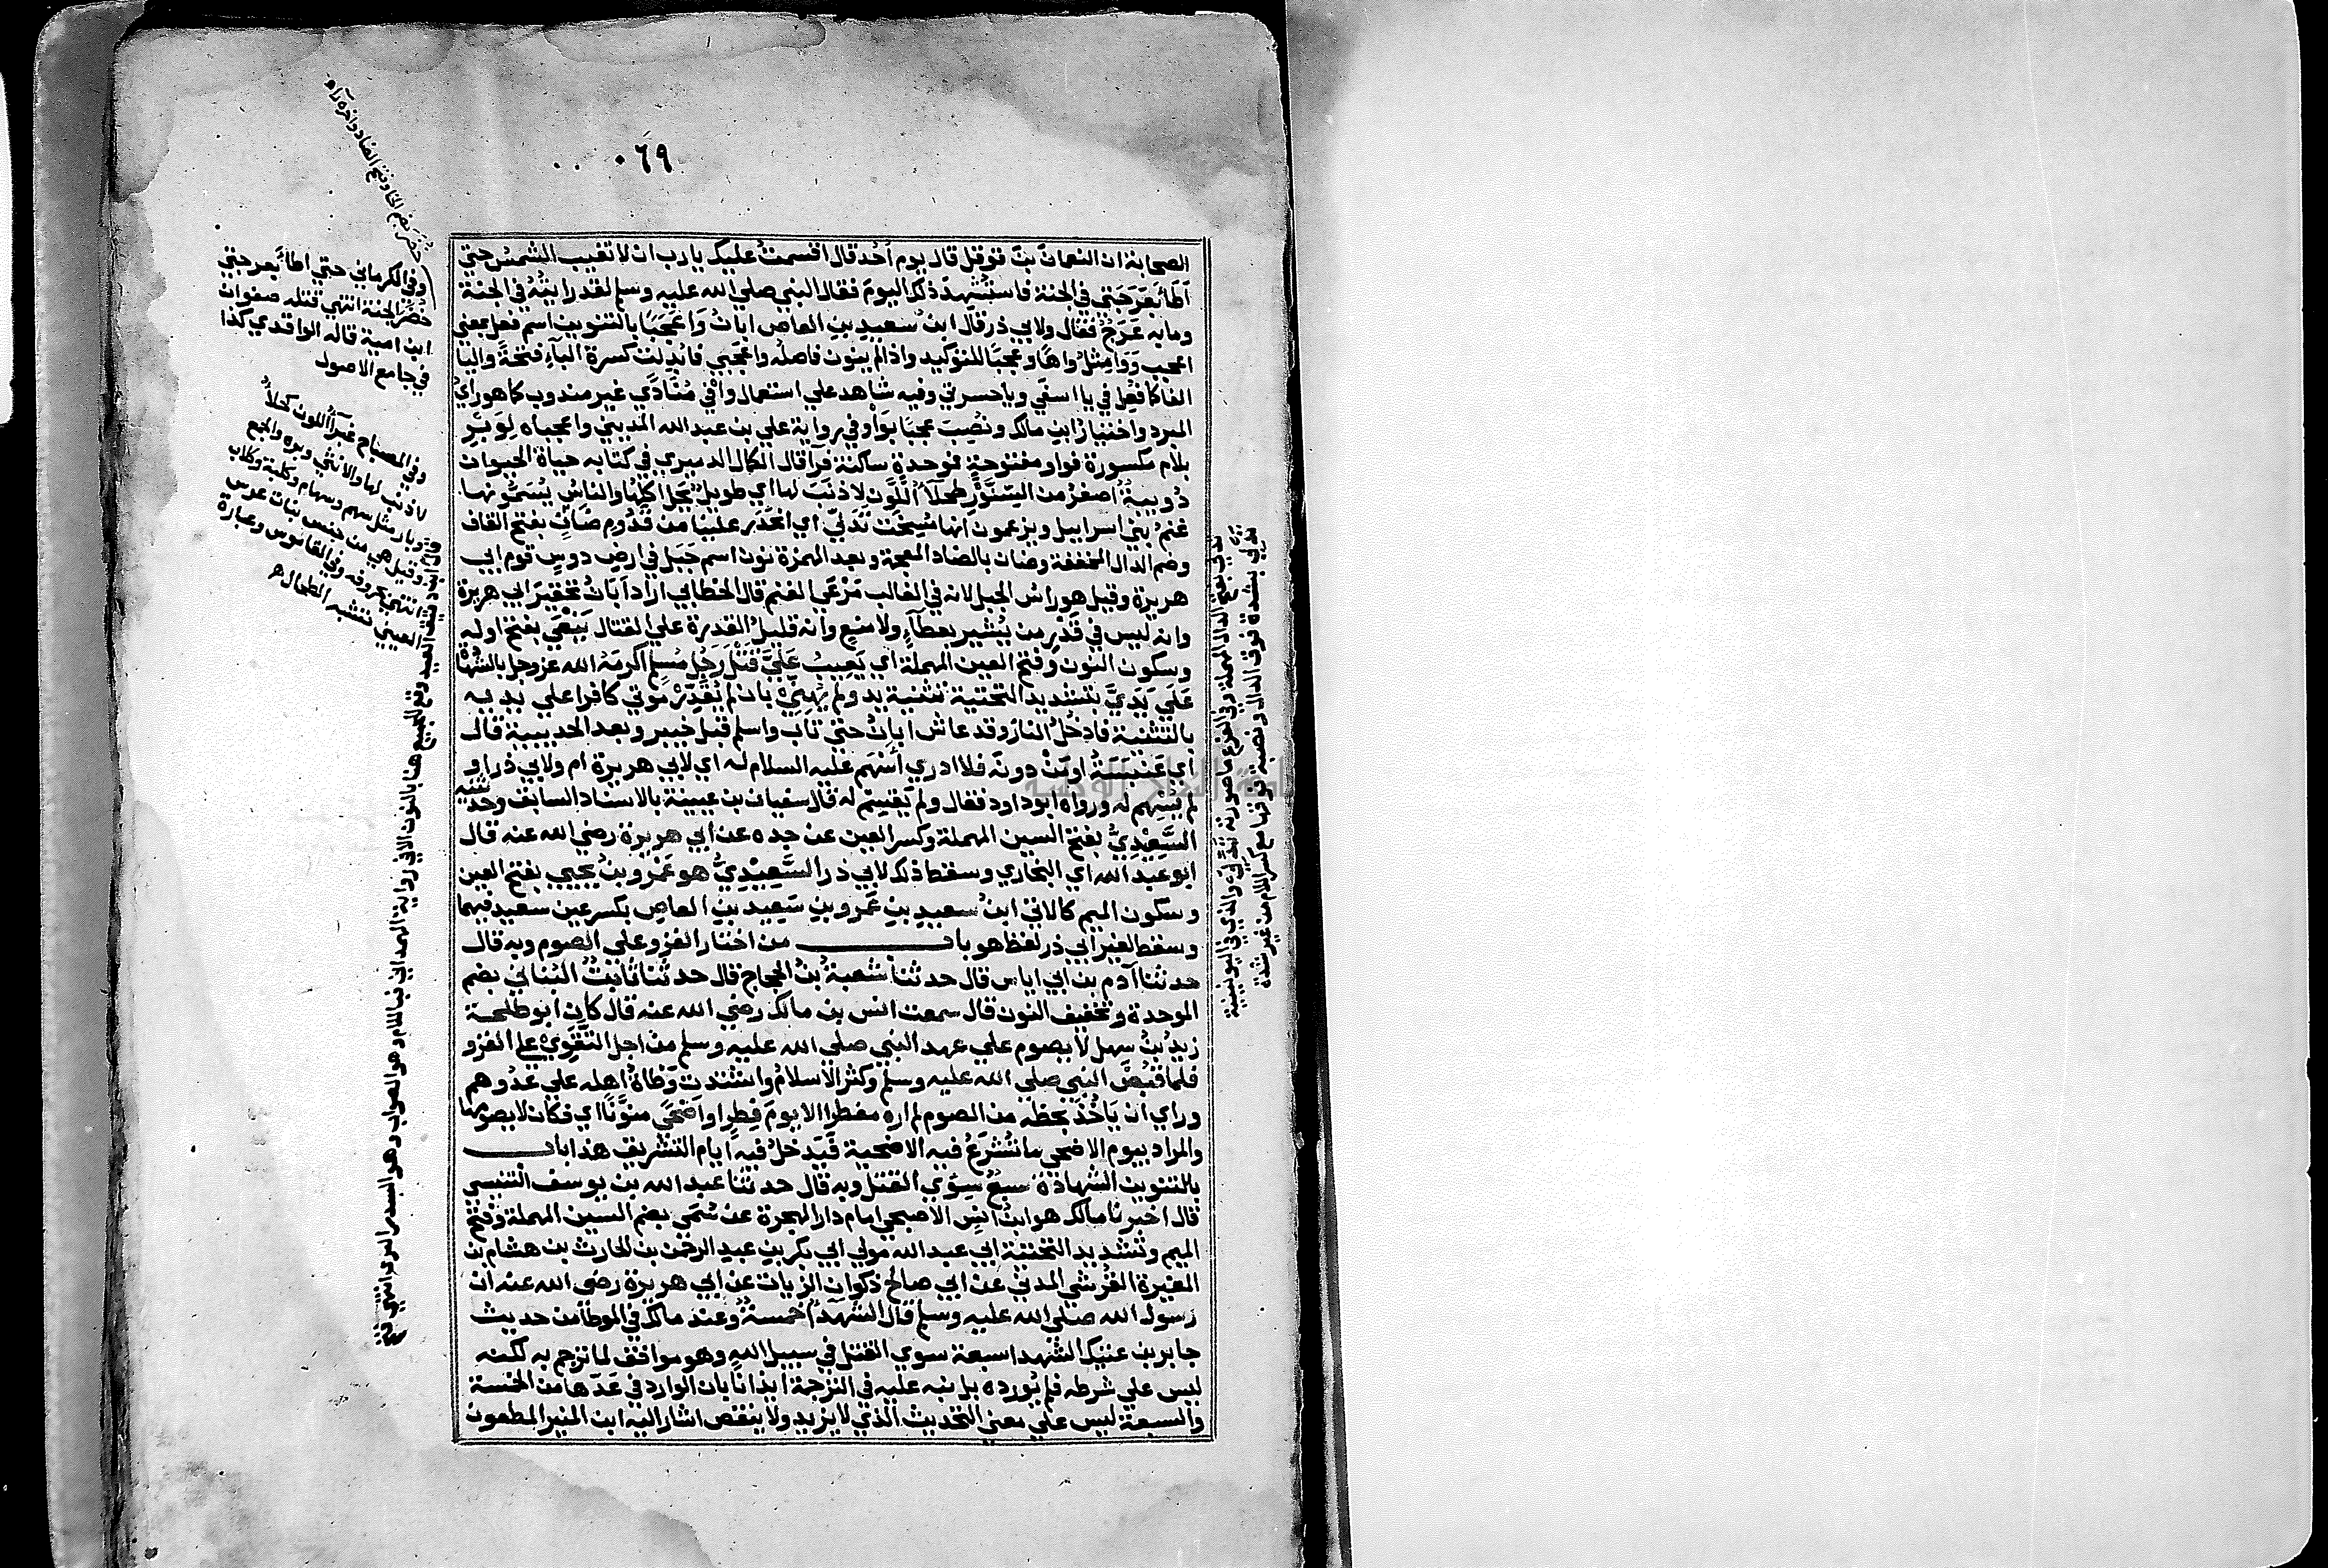 ٠٦٩
الصحابة ان النعمان بن قوقل قال يوم أحد قال اقسمت عليك يا رب ان لا تغيب الشمس حتي
أطأ بعرجتي في الجنة فاستشهد ذلك اليوم فقال النبي صلي الله عليه وسلم لقد رايته في الجنة
وما به عرج فقال ولابي ذر قال ابن سعيد بن العاص ابان واعجبا بالتنوين اسم فعل بمعني
اعجب ووا مثل واها وعجبا للتوكيد واذا لم ينون فاصله واعجبي فابدلت كسرة الباء فتحة واليا
الفا كما فعل في يا اسفي ويا حسرتي وفيه شاهد علي استعمال وا في منادي غير مندوب كما هو راي
المبرد واختيار ابن مالك ونصب عجبا بوا وفي رواية علي بن عبد الله المديني واعجباه لوبر
بلام مكسورة فواو مفتوحة فموحدة ساكنة فرا قال الكمال الدميري في كتابه حياة الحيوان
دويبة اصغر من السنور طحلاء اللون لا ذنب لها اي طويل يحل اكلها والناس يسمونها
غنم بني اسرايل ويزعمون انها مسخت تدلي اي انحدر علينا من قدوم ضان بفتح القاف
وضم الدال المخففة وضان بالضاد المعجمة وبعد الهمزة نون اسم جبل في ارض دوس قوم ابي
هريرة وقيل هو راس الجبل لانه في الغالب مرعي الغنم قال الخطابي اراد ابان تحقير ابي هريرة
وانه ليس في قدر من يشير بعطاء ولا منع وانه قليل القدرة علي القتال ينعي بفتح اوله
وسكون النون وفتح العين المهملة اي يعيب علي قتل رجل مسلم اكرمه الله عز وجل بالشهادة
علي يدي بتشديد التحتية تثنية يد ولم يهني بان لم يقدر موتي كافرا علي يديه
بالتثنية فادخل النار وقد عاش ابان حتي تاب واسلم قبل خيبر وبعد الحديبية قال
اي عنبسة او من دونه فلا ادري أسهم عليه السلام له اي لابي هريرة ام ولابي ذر او
لم يسهم له ورواه ابو داود فقال ولم يقسم له قال سفيان بن عيينة بالاسناد السابق وحدثنيه
السعيدي بفتح السين المهملة وكسر العين عن جده عن ابي هريرة رضي الله عنه قال
ابو عبد الله اي البخاري وسقط ذلك لابي ذر السعيدي هو عمرو بن يحيي بفتح العين
وسكون الميم كالاتي ابن سعيد بن عمرو بن سعيد بن العاص بكسر عين سعيد فيهما
وسقط لغير ابي ذر لفظ هو باب من اختار الغزو علي الصوم وبه قال
حدثنا آدم بن ابي اياس قال حدثنا شعبة بن الحجاج قال حدثنا ثابت البناني بضم
الموحدة وتخفيف النون قال سمعت انس بن مالك رضي الله عنه قال كان ابو طلحة
زيد بن سهل لا يصوم علي عهد النبي صلي الله عليه وسلم من اجل التقوي علي الغزو
فلما قبض النبي صلي الله عليه وسلم وكثر الاسلام واشتدت وطاة اهله علي عدوهم
وراي ان ياخذ بحظه من الصوم لم اره مفطرا الا يوم فطر او اضحي منونا اي فكان لا يصومها
والمراد بيوم الاضحي ما تشرع فيه الاضحية فيدخل فيه ايام التشريق هذا باب
بالتنوين الشهادة سبع سوي القتل وبه قال حدثنا عبد الله بن يوسف التنيسي
قال اخبرنا مالك هو ابن انس الاصبحي امام دار الهجرة عن سمي بضم السين المهملة وفتح
الميم وتشديد التحتية ابي عبد الله مولي ابي بكر بن عبد الرحمن بن الحارث بن هشام بن
المغيرة القرشي المدني عن ابي صالح ذكوان الزيات عن ابي هريرة رضي الله عنه ان
رسول الله صلي الله عليه وسلم قال الشهداء خمسة وعند مالك في الموطا من حديث
جابر بن عتيك الشهدا سبعة سوي القتل في سبيل الله وهو موافق لما ترجم به لكنه
ليس علي شرطه فلم يورده بل نبه عليه في الترجمة ايذانا بان الوارد في عدها من الخمسة
والسبعة ليس علي معني التحديث الذي لا يزيد ولا ينقص اشار اليه ابن المنير المطعون
وفي الكرماني حتي اطأ بعرجتي
خضر الجنة انتهي قتله صفوان
ابن امية قاله الواقدي كذا
في جامع الاصول
خضر بضم الخا وفتح الضاد واخره راه
وفي المصباح غبراء اللون كحلاء
لا ذنب لها والانثي وبره والجمع
وبار مثل سهم وسهام وكلبة وكلاب
وقيل هي من جنس بنات عرس
انتهي بحروفه وفي القاموس وعبارة
العيني تشبه الطحال ه
قال ابن دقيق العيد وقع للجميع هنا بالنون الا في رواية الهمداني فباللام وهو الصواب وهو السدر البري انتهي فتح
تدلي بفتح الدال المهملة وفي الفرع ما صورته تدلي والذي في اليونينية
تدلي بشدة فوق الدال ونصبة فوقها مع كسر اللام من غير شدة